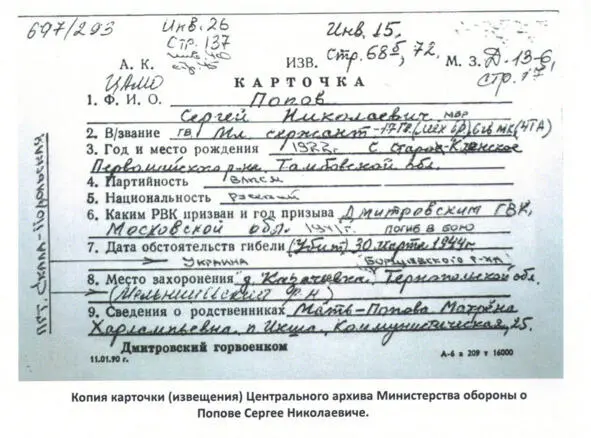 697/293
Инв. 26
Стр. 137
Инв. 15,
Стр. 68б, 72,
А. К. ИЗВ. М. З. Д-13-6,
стр. 17,
ЦАМО
КАРТОЧКА
1. Ф. И. О. Попов
Сергей Николаевич
2. В/звание гв. Мл. сержант - 17 гв. (мех бр) 6 гв мк (4ТА)
3. Год и место рождения 1922 с. Старо-Кленское
Первомайского р-на Тамбовской обл.
4. Партийность ВЛКСМ
5. Национальность Русский
6. Каким РВК призван и год призыва Дмитровским ГВК,
Московской обл. 1941г. погиб в бою
7. Дата обстоятельств гибели (Убит) 30 марта 1944г.
Украина Борщевского р-на
8. Место захоронения д. Казачевка, Тернопольской обл.
(Мельницкий р-н)
9. Сведения о родственниках Мать-Попова Матрёна
Харлампьевна, п. Икша, Коммунистическая, 25.
Дмитровский горвоенком
11.01.90 г. А-6 з 209 т 16000
пгт. Скала-Подольская
Копия карточки (извещения) Центрального архива Министерства обороны о
Попове Сергее Николаевиче.